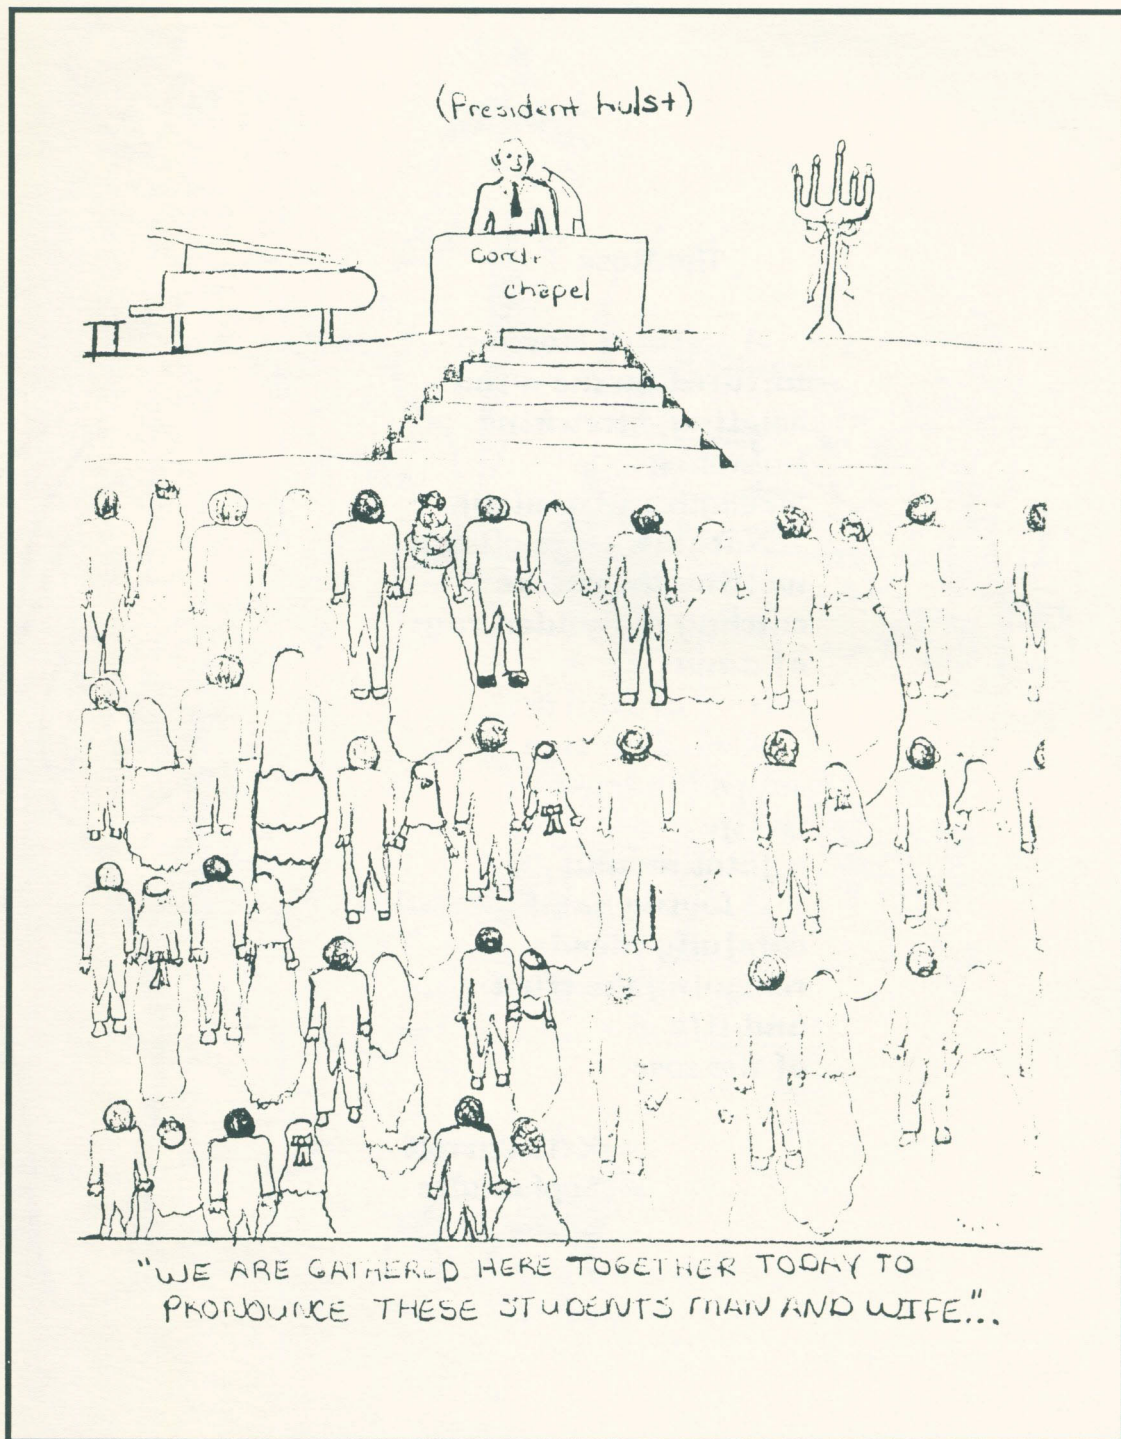 (President hulst)
Dordt
chapel
"WE ARE GATHERED HERE TOGETHER TODAY TO
PRONOUNCE THESE STUDENTS MAN AND WIFE."...